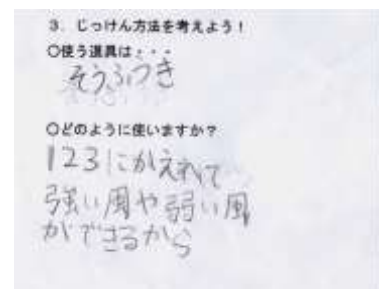 3. じっけん方法を考えよう！
○使う道具は・・・
そうふつき
○どのように使いますか？
123にかえれて
強い風や弱い風
ができるから